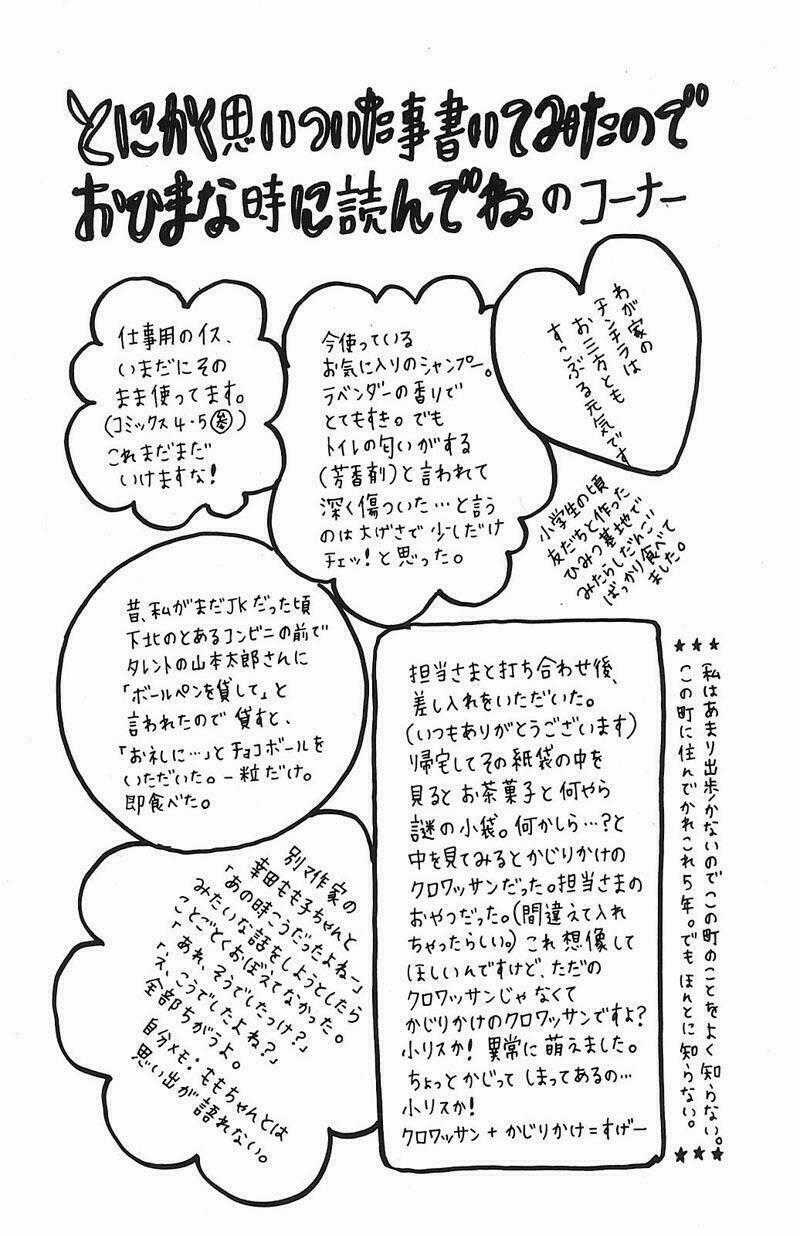 とにかく思いついた事書いてみたので
おひまな時に読んでね。のコーナー
わが家の
チンチラは
お三方とも
すこぶる元気です
今使っている
お気に入りのシャンプー。
ラベンダーの香りで
とてもすき。でも
トイレの匂いがする
(芳香剤)と言われて
深く傷ついた…と言う
のは大げさで少しだけ
チェッ!と思った。
仕事用のイス、
いまだにその
まま使ってます。
(コミックス4・5参)
これまだまだ
いけますな!
小学生の頃
友だちと作った
ひみつ基地で
みたらしだんご
ばっかり食べて
ました。
昔、私がまだJKだった頃
下北のとあるコンビニの前で
タレントの山本太郎さんに
「ボールペンを貸して」と
言われたので貸すと、
「お礼に…」とチョコボールを
いただいた。一粒だけ。
即食べた。
担当さまと打ち合わせ後、
差し入れをいただいた。
(いつもありがとうございます)
帰宅してその紙袋の中を
見るとお茶菓子と何やら
謎の小袋。何かしら…?と
中を見てみるとかじりかけの
クロワッサンだった。担当さまの
おやつだった。(間違えて入れ
ちゃったらしい。)これ想像して
ほしいんですけど、ただの
クロワッサンじゃなくて
かじりかけのクロワッサンですよ?
小リスか!異常に萌えました。
ちょっとかじってしまってあるの…
小リスか!
クロワッサン+かじりかけ=すげー
別マ作家の
幸田もも子ちゃんと
「あの時こうだったよねー」
みたいな話をしようとしたら
ことごとくおぼえてなかった。
「あれ、そうでしたっけ?」
「え、こうでしたよね?」
全部ちがうよ。
自分メモ・ももちゃんとは
思い出が語れない。
★★★私はあまり出歩かないのでこの町のことをよく知らない。
この町に住んでかれこれ5年。でもほんとに知らない。★★★